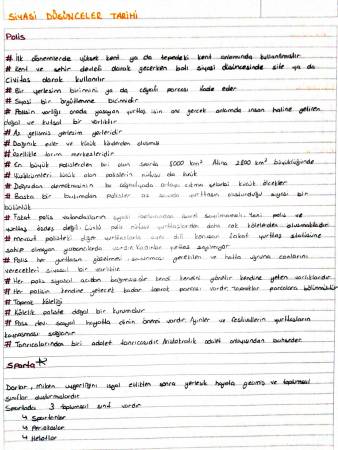 SİYASİ DÜŞÜNCELER TARİHİ
Polis
# İlk dönemlerde yüksek kent ya da tepedeki kent anlamında kullanılmıştır
# Kent ve şehir devleti olarak geçerken batı siyasi düşüncesinde site ya da
Civitas olarak kullanılır
# Bir yerleşim birimini ya da coğrafi parçası ifade eder
# Siyasi bir örgütlenme biçimidir
# Polisin varlığı orada yaşayan yurttaş için onu gerçek anlamda insan haline getiren
doğal ve kutsal bir varlıktır
# Az gelişmiş yerleşim yerleridir
# Dağınık evler ve küçük köylerden oluşmuş
# Özellikle tarım merkezleridir
# En büyük polislerden biri olan Sparta 8000 km² Atina 2800 km² büyüklüğünde
# Yüzölçümleri küçük olan polislerin nüfusu da küçük
# Doğrudan demokrasinin bu coğrafyada ortaya çıkma sebebi küçük ölçekler
# Başka bir bakımdan polisler az sayıda yurttaşın oluşturduğu siyasi bir
bütünlük
# Fakat polis vatandaşların siyasi Yani polis ve
yurttaş özdeş değil Çünkü polis nüfusu yurttaşlardan daha çok kölelerden oluşmaktadır
# Mevcut polisteki diğer yurttaşlarla aynı dili konuşan fakat yurttaş statüsüne
sahip olmayan yabancılarda vardır Kadınlar yurttaş sayılmıyor
# Polis her yurttaşın gözetmesi savunması gerektiren ve hatta uğruna canlarını
verecekleri siyasal bir varlıktır
# Her polis siyasal açıdan bağımsızdır kendi kendini yönetir kendine yeten varlıklardır
# Her polisin kendine yetecek kadar toprak parçası vardır, topraklar parçalara bölünmüştür
# Toprak köleliği
# Kölelik poliste doğal bir kurumdur
# Poliste sosyal hayatta dinin önemi vardır. Ayinler ve festivallerin yurttaşların
kaynaşması sağlanır
# Tanrıcalarından biri adalet tanrıcasıdır. Aristokratik adalet anlayışından bahseder
Sparta
Dorlar, Miken uygarlığını işgal ettikten sonra yerleşik hayata geçmiş ve toplumsal
sınıflar oluşturmalardır
Spartada 3 toplumsal sınıf vardır
↳ Spartalılar
↳ Perioikoslar
↳ Helotlar